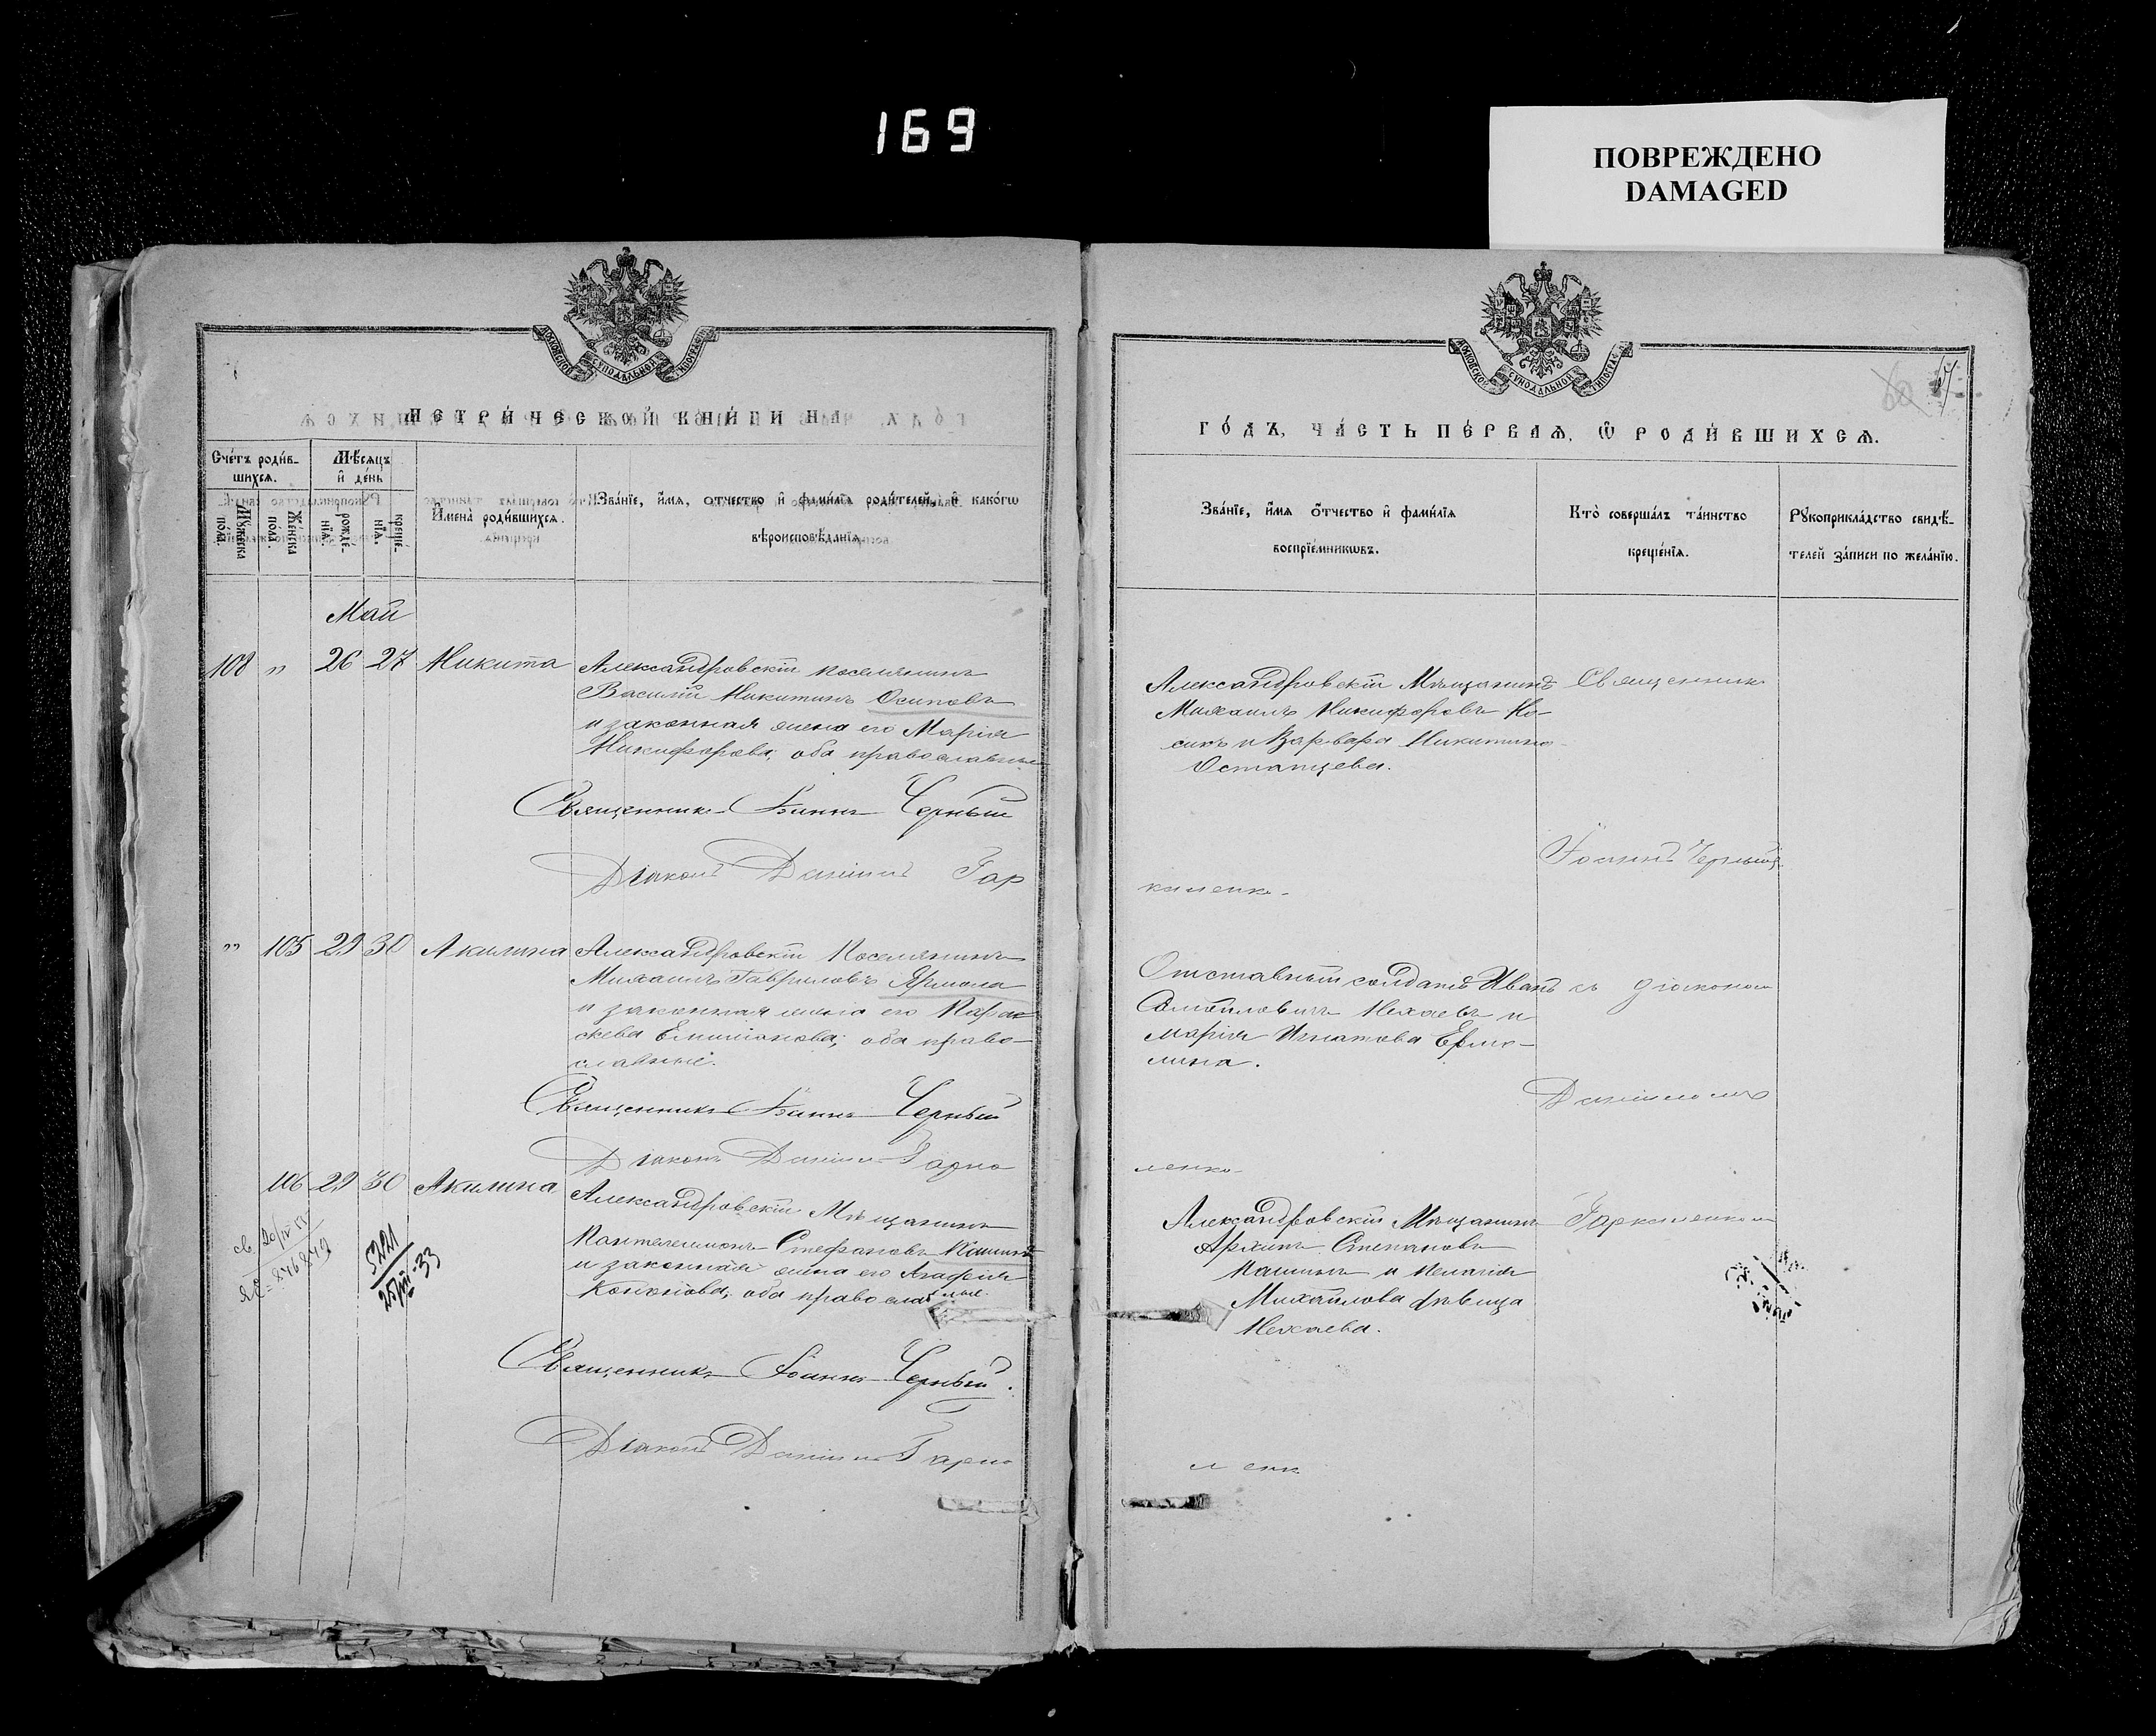 169
ПОВРЕЖДЕНО
DAMAGED
МОСКОВСКОЙ СУНОДАЛЬНОЙ ТИПОГРАФІИ
МЕТРИ́ЧЕСКОЙ КНИ́ГИ НА
Сче́тъ роди́в-
шихся.
Мѣ́сяцъ
и҆ де́нь
Му́жеска
по́ла.
Же́нска
по́ла.
рожде́-
нїѧ.
креще́-
нїѧ.
И҆мена̀ роди́вшихся.
Зва́нїе, и҆́мѧ, ѻ҆́тчество и҆ фами́лїѧ роди́телей, и҆ како́гѡ
вѣроисповѣ́данїѧ
Май
108 " 26 27 Никита
Александровскій поселянинъ
Василій Никитинъ Осиповъ
и законная жена его Марія
Никифорова, оба православные
Священникъ Іоаннъ Черный
Діаконъ Даніилъ Гар
" 105 29 30 Акилина
Александровскій Поселянинъ
Михаилъ Гавриловъ Ярмола
и законная жена его Парас
кева Емиліанова; оба право-
славные.
Священникъ Іоаннъ Черный
Діаконъ Даніилъ Гарко
106 29 30 Акилина
Александровскій Мѣщанинъ
Пантелеимонъ Стефановъ
и законная жена его Агафія
Кононова, оба православные.
5221
Священникъ Іоаннъ Черный.
Діаконъ Даніилъ Гарко
МОСКОВСКОЙ СУНОДАЛЬНОЙ ТИПОГРАФІИ
60
ГО́ДЪ, ЧА́СТЬ ПЕ́РВАѦ, Ѡ҆ РОДИ́ВШИХСѦ.
Зва́нїе, и҆́мѧ ѻ҆́тчество и҆ фами́лїѧ
воспрїе́мникѡвъ.
Кто̀ соверша́лъ та́инство
креще́нїѧ.
Рꙋкоприкла́дство свидѣ́-
телей за́писи по жела́нїю.
Александровскій Мѣщанинъ
Михаилъ Никифоровъ Но-
сикъ и Варвара Никитина
Остапцева.
Священникъ
Іоаннъ Черный
киленко
Отставный солдатъ Иванъ
Самойловичъ Нехаевъ и
Марія Игнатова Ермо-
лина.
съ діакономъ
Даніиломъ
ленко
Александровскій Мѣщанинъ
Архипъ Степановъ
и Пелагія
Михайлова дѣвица
Нехаева.
Гаркиленкомъ
ленк